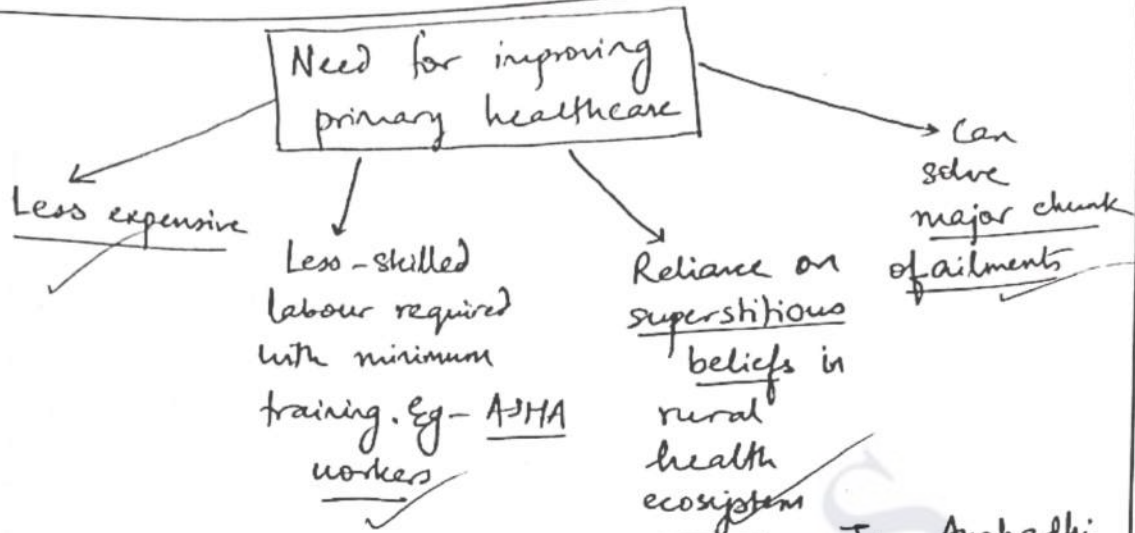 Need for improving
primary healthcare
Less expensive
Less-skilled
labour required
with minimum
training. Eg- ASHA
workers
Reliance on
superstitious
beliefs in
rural
health
ecosystem
Can
solve
major chunk
of ailments